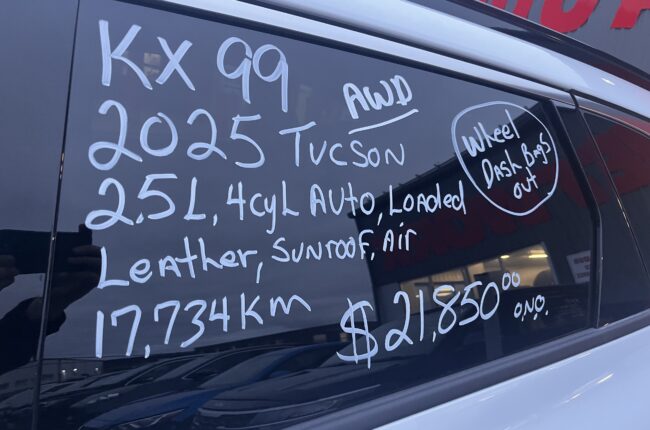 KX 99
AWD
2025 TUCSON
Wheel
DASH Bags
out
2.5L, 4cyL AUTO, LOADED
LEATHER, SUNROOF, AIR
17,734 Km
$21,850.00
O.N.O.